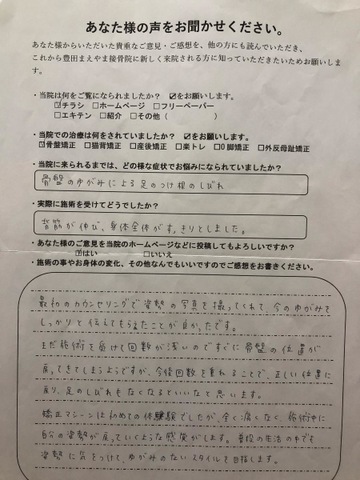 あなた様の声をお聞かせください。
あなた様からいただいた貴重なご意見・ご感想を、他の方にも読んでいただき、
これから豊田まえやま接骨院に新しく来院される方に知っていただきたいためお願いしま
す。
・当院は何をご覧になられましたか? ☑をお願いします。
☑チラシ □ホームページ □フリーペーパー
□エキテン □紹介 □その他( )
・当院での治療は何をされていますか? ☑をお願いします。
☑骨盤矯正 □猫背矯正 □産後矯正 □楽トレ □O脚矯正 □外反母趾矯正
・当院に来られるまでは、どの様な症状でお悩みになられていましたか?
骨盤のゆがみによる足のつけ根のしびれ
・実際に施術を受けてどうでしたか?
背筋が伸び、身体全体がすっきりとしました。
・あなた様のご意見を当院のホームページなどに投稿してもよろしいですか?
☑はい □いいえ
・施術の事やお身体の変化、その他なんでもいいですのでご感想をお書きください。
最初のカウンセリングで姿勢の写真を撮ってくれて、今のゆがみを
しっかりと伝えてもらえたことが良かったです。
まだ施術を受けて回数が浅いのですぐに骨盤の位置が
戻ってきてしまうですが、今後回数を重ねることで、正しい位置に
戻り、足のしびれもなくなるといいなと思います。
矯正マシーンは初めての体験でしたが、全く痛くなく、施術中に
自分の姿勢が戻っていくような感覚がします。普段の生活の中でも
姿勢に気をつけて、ゆがみのないスタイルを目指します。